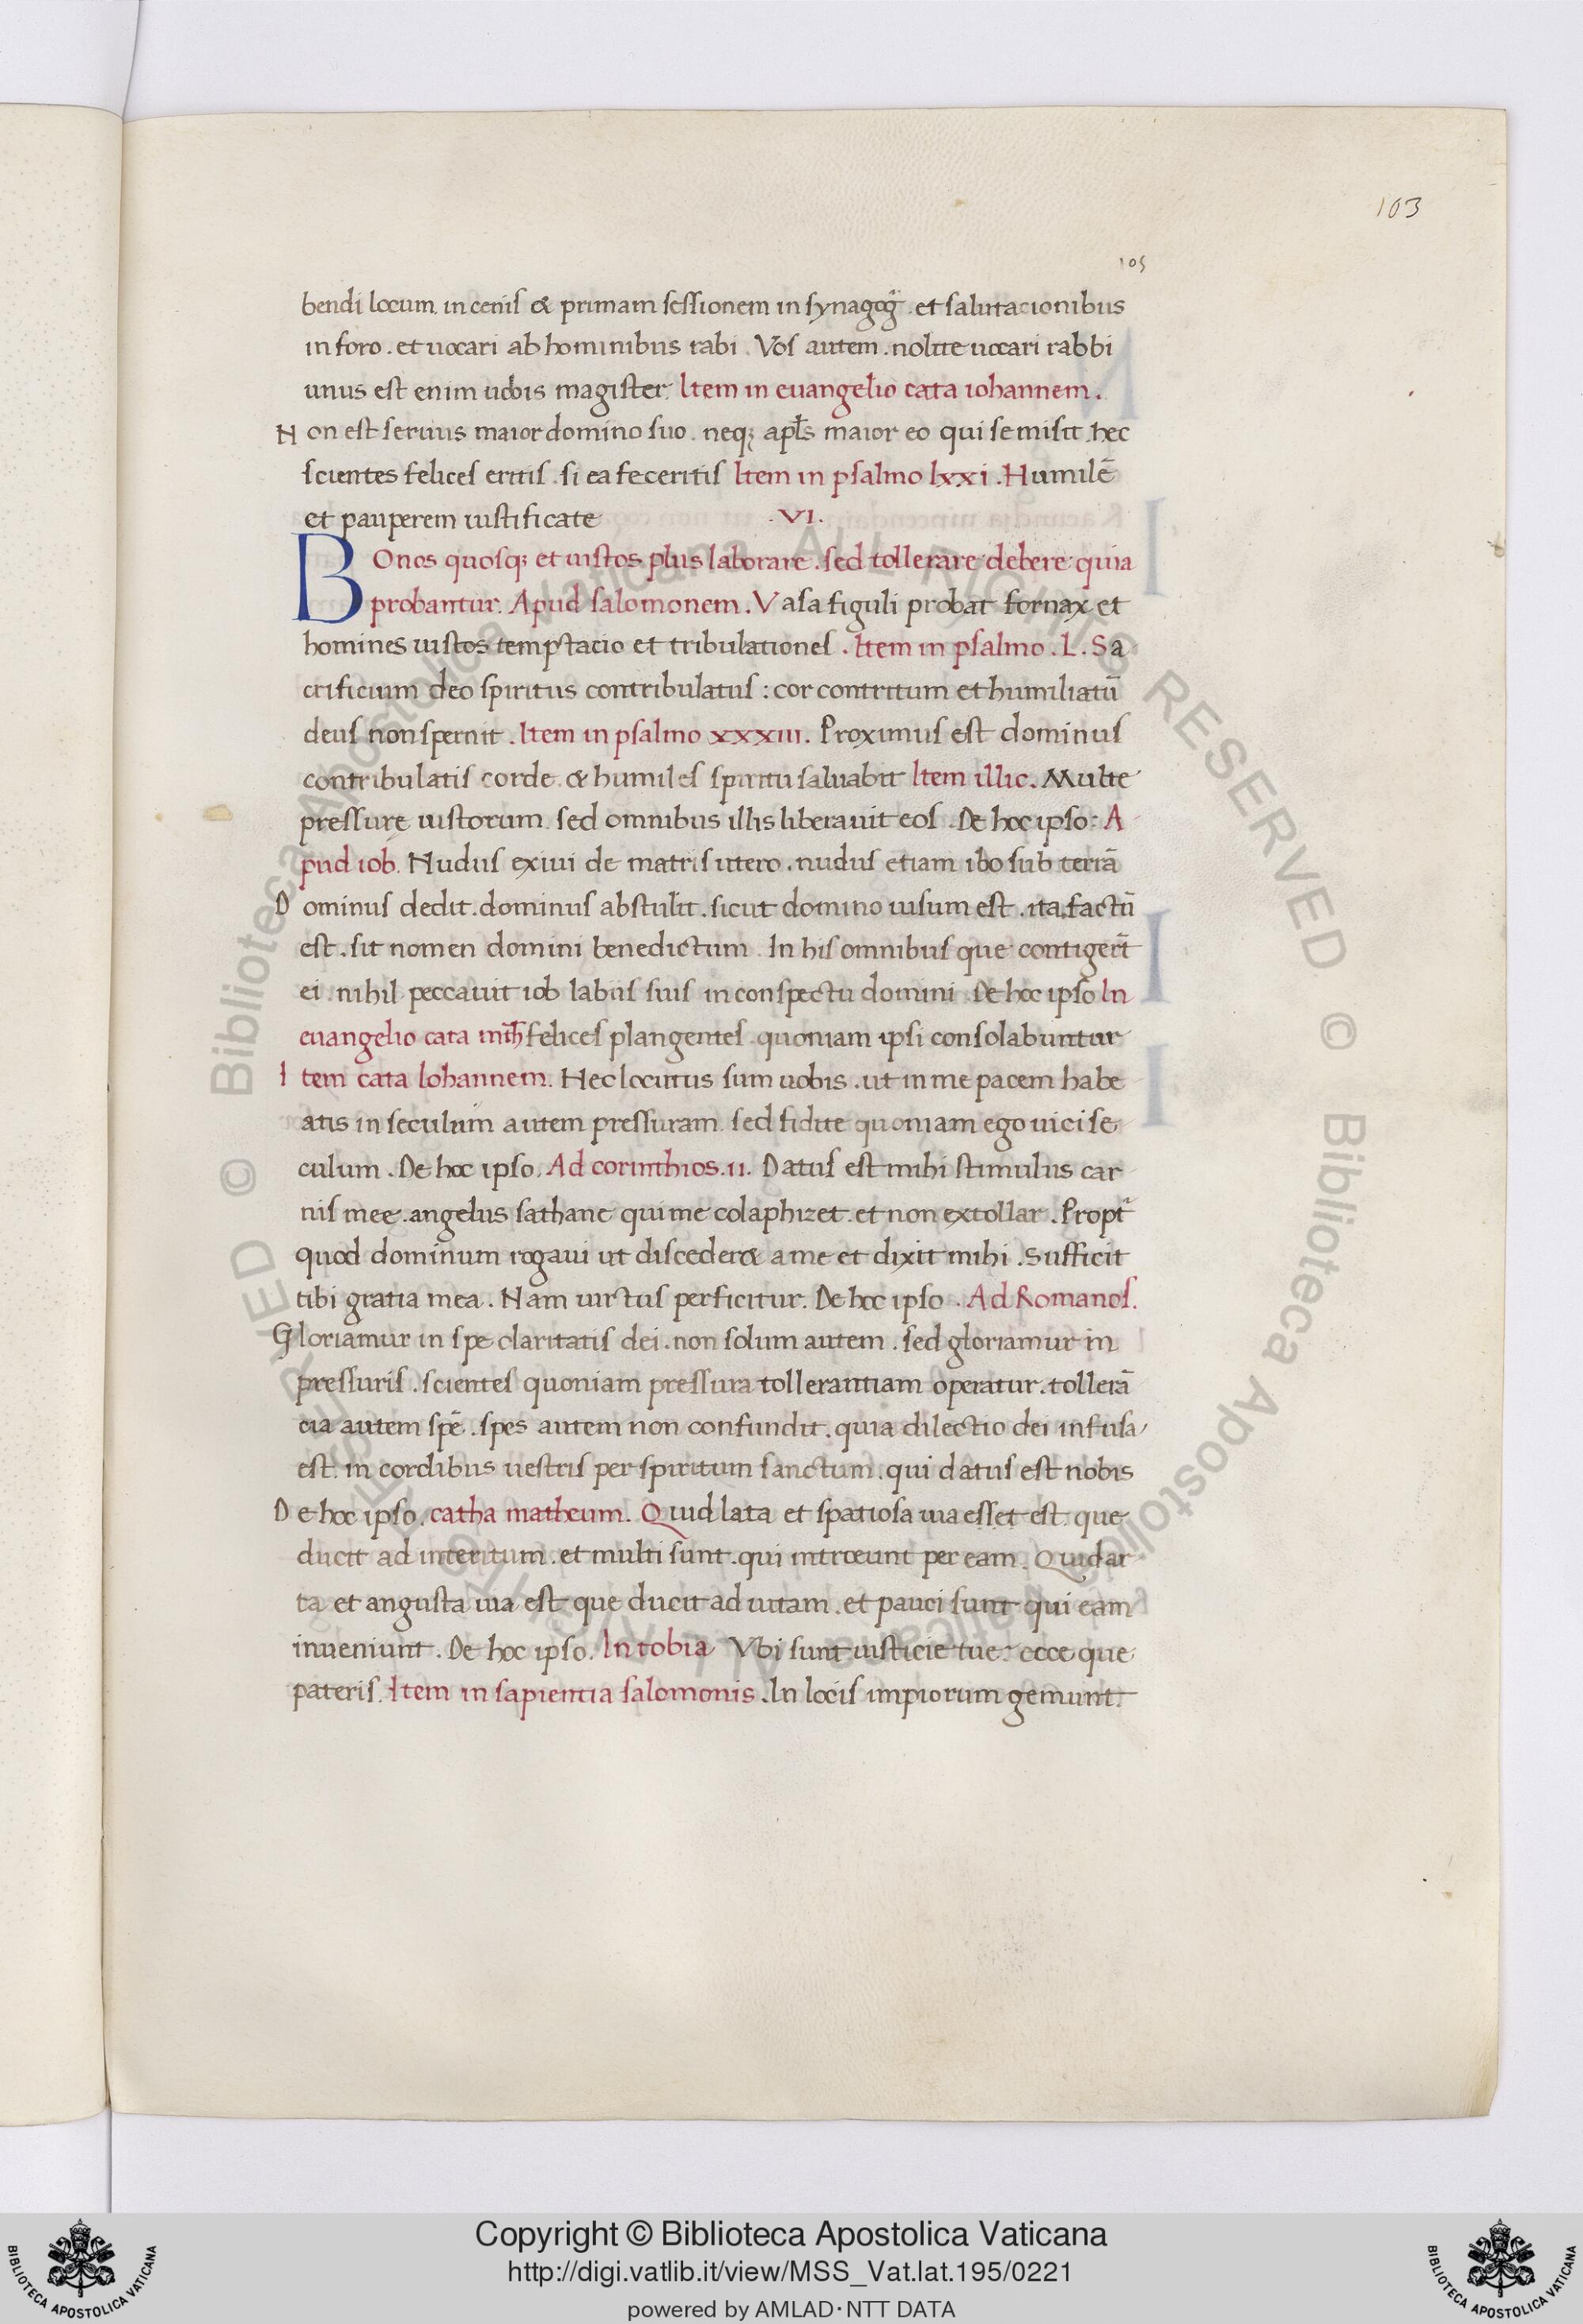 103
105
bendi locum. in cenis & primam sessionem in synagog̃. et salutacionibus
in foro. et uocari ab hominibus rabi. Vos autem. nolite uocari rabbi
unus est enim uobis magister. Item in euangelio cata iohannem.
Non est seruus maior domino suo. neq; apl̄s maior eo qui se misit. hec
scientes felices eritis. si ea feceritis Item in psalmo lxxi. Humilē
et pauperem iustificate .VI.
BOnos quosq; et iustos plus laborare. sed tollerare debere quia
probantur. Apud salomonem. Vasa figuli probat fornax et
homines iustos temptacio et tribulationes. Item in psalmo. L. Sa
crificium deo spiritus contribulatus: cor contritum et humiliatū
deus non spernit. Item in psalmo xxxiii. Proximus est dominus
contribulatis corde. & humiles spiritu saluabit Item illic. Multe
pressurę iustorum. sed omnibus illis liberauit eos. De hoc ipso: A
pud iob. Nudus exiui de matris utero. nudus etiam ibo sub terrā
Dominus dedit. dominus abstulit. sicut domino uisum est. ita factū
est. sit nomen domini benedictum. In his omnibus que contigerūt
ei. nihil peccauit iob labiis suis in conspectu domini. De hoc ipso In
euangelio cata mth̄ felices plangentes. quoniam ipsi consolabuntur
Item cata Iohannem. Hec locutus sum uobis. ut in me pacem habe
atis in seculum autem pressuram. sed fidite quoniam ego uici se
culum. De hoc ipso. Ad corinthios. II. Datus est mihi stimulus car
nis mee. angelus sathane qui me colaphizet. et non extollar. Propt̃
quod dominum rogaui ut disceder& a me et dixit mihi. Sufficit
tibi gratia mea. Nam uirtus perficitur. De hoc ipso. Ad Romanos.
Gloriamur in spe claritatis dei. non solum autem. sed gloriamur in
pressuris. scientes quoniam pressura tollerantiam operatur. tollerā
cia autem spē. spes autem non confundit. quia dilectio dei infusa
est. in cordibus uestris per spiritum sanctum. qui datus est nobis
De hoc ipso. catha matheum. Quid lata et spatiosa uia esset est. que
ducit ad interitum. et multi sunt. qui introeunt per eam. Quid ar
ta et angusta uia est que ducit ad uitam. et pauci sunt qui eam
inueniunt. De hoc ipso. In tobia Vbi sunt iusticie tue: ecce que
pateris. Item in sapientia salomonis. In locis impiorum gemunt.
© Biblioteca Apostolica Vaticana ALL RIGHTS RESERVED © Biblioteca Apostolica Vaticana ALL RIGHTS RESERVED
Copyright © Biblioteca Apostolica Vaticana
http://digi.vatlib.it/view/MSS_Vat.lat.195/0221
powered by AMLAD·NTT DATA
BIBLIOTECA APOSTOLICA VATICANA
BIBLIOTECA APOSTOLICA VATICANA